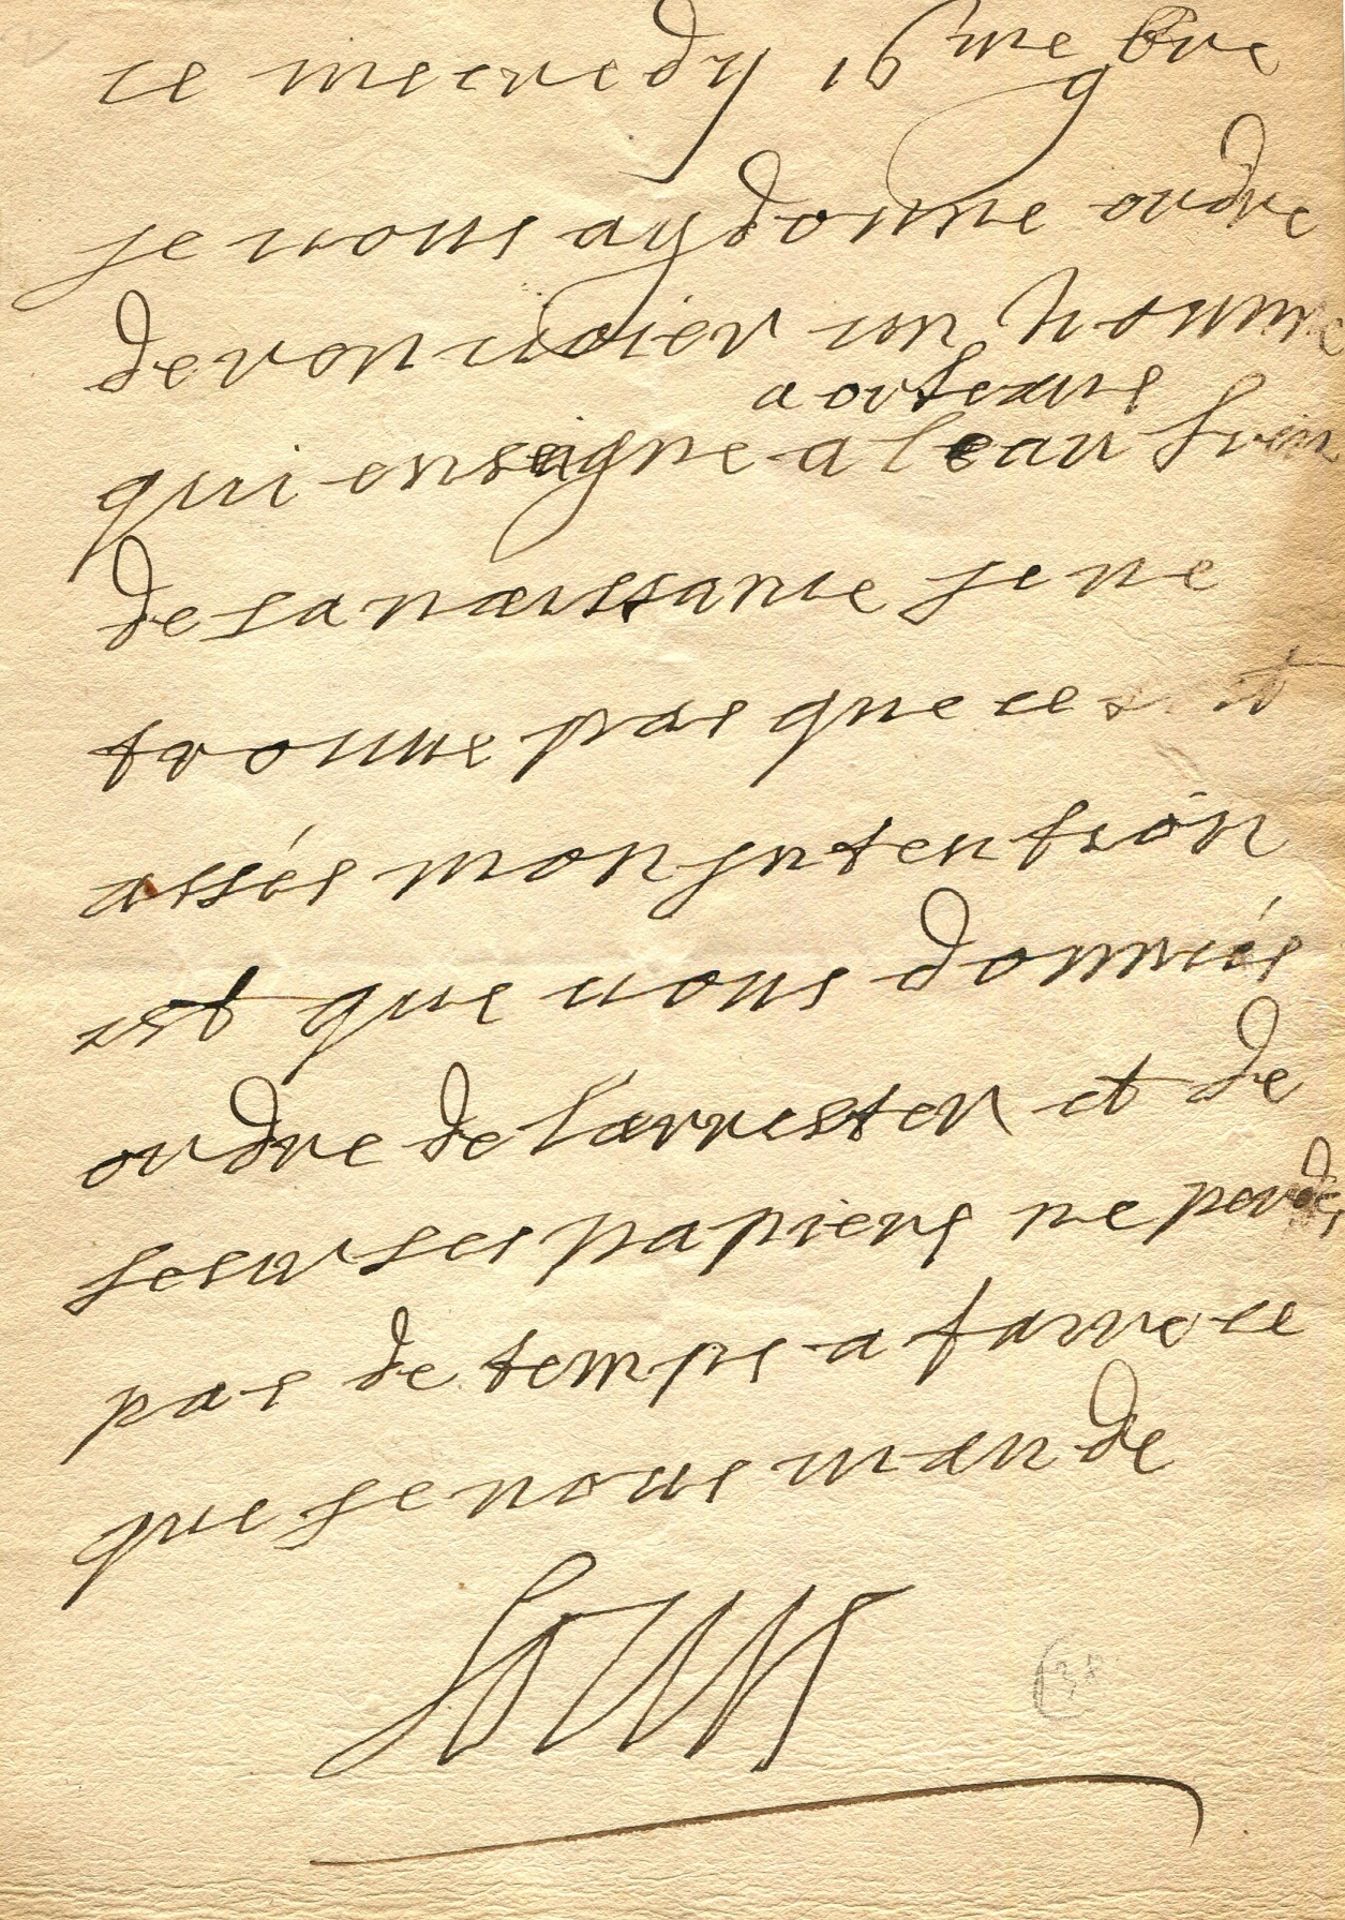 ce mecredy 16me 9bre
je vous ay donne ordre
de ronuoier un homme
a orleans
qui enseigne a leau
de sa naissance je ne
trouue pas que ce soit
assés mon jntention
est que uous donniés
ordre de larrester et de
sesir ses papiers ne perdés
pas de temps a fairre ce
que je uous mande
Louis